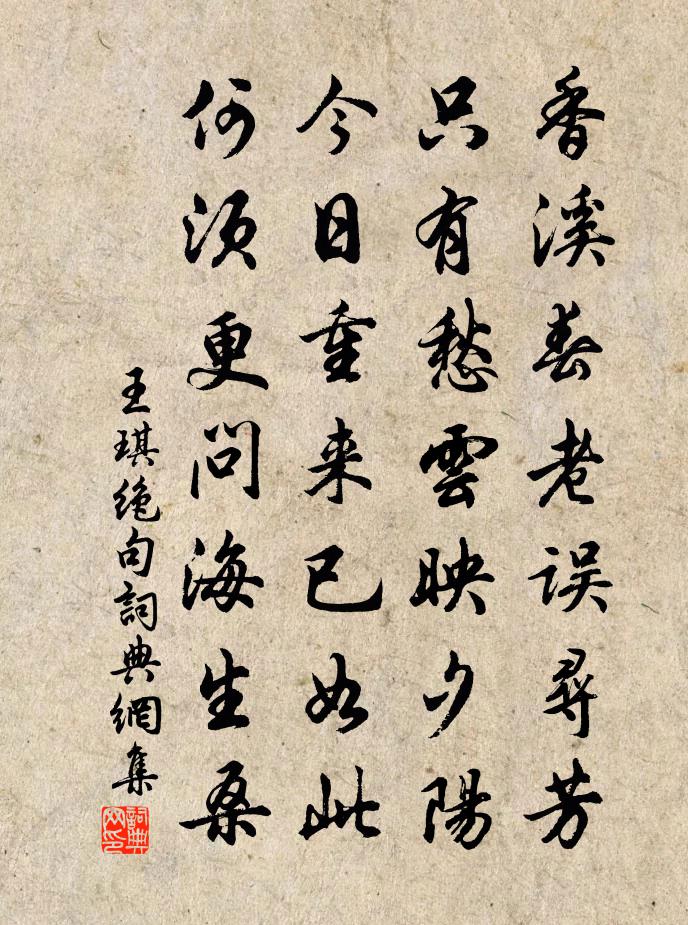 香溪春老误尋芳
只有愁雲映夕陽
今日重来已如此
何须更問海生桑
王琪绝句詞典網集
詞典网印